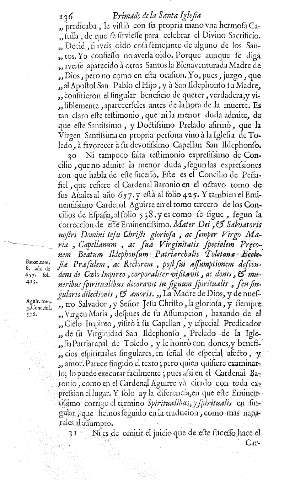 136 Primado de la Santa Iglesia
„ predicaba, la vistiò con su propria mano vna hermosa Ca-
„ sulla, de que se sirviesse para celebrar el Divino Sacrificio.
„ Dezid, si aveis oìdo cosa semejante de alguno de los San-
„ tos. Yo confiesso no averla oìdo. Porque aunque se diga
„ averle aparecido à otros Santos la Bienaventurada Madre de
„ Dios, pero no como en esta ocasion. Yo, pues, juzgo, que
„ el Apostol San Pablo el Hijo, y à San Ildephonso su Madre,
„ confirieron el singular beneficio de quererse, verdadera, y vi-
„ siblemente, aparecerseles antes de la hora de la muerte. Es
tan claro este testimonio, que ni la menor duda admite, de
que este Santissimo, y Doctissimo Prelado afirmò, que la
Virgen Santissima en propria persona vino à la Iglesia de To-
ledo, à favorecer à su devotissimo Capellan San Ildephonso.
30 Ni tampoco falta testimonio expressissimo de Con-
cilio, que no admite la menor duda, segun las expressiones
con que habla de este sucesso. Este es el Concilio de Peña-
fiel, que refiere el Cardenal Baronio en el octavo tomo de
sus Anales al año 657. y està al folio 425. Y tambien el Emi-
nentissimo Cardenal Aguirre en el tomo tercero de los Con-
cilios de España, al folio 538. y es como se sigue, segun la
correccion de este Eminentissimo. Mater Dei, & Salvatoris
nostri Domini Iesu Christi gloriosa, ac semper Virgo Ma-
ria, Capellanum, ac sua Virginitatis specialem Praeco-
nem Beatum Ildephonsum Patriarchalis Toletanae Eccle-
siae Praesulem, ac Rectorem, post sui assumptionem descen-
dens de Coelo Impireo, corporaliter visitavit, ac donis, & mu-
neribus spiritualibus decoravit in signum spiritualis, seu sin-
gularis dilectionis, & amoris. „ La Madre de Dios, y de nues-
„ tro Salvador, y Señor Jesu Christo, la gloriosa, y siempre
„ Virgen Maria, despues de su Assumpcion, baxando de el
„ Cielo Impireo, visitò à su Capellan, y especial Predicador
„ de su Virginidad San Ildephonso, Prelado de la Igle-
„ sia Patriarchal de Toledo, y le honrò con dones, y benefi-
„ cios espirituales singulares, en señal de especial afecto, y
„ amor. Parece fingido el texto; pero quien quisiere examinar-
lo, lo puede executar facilmente; pues assi en el Cardenal Ba-
ronio, como en el Cardenal Aguirre và citado con toda ex-
pression el lugar. Y solo ay la diferencia, en que este Eminen-
tissimo corrige el termino Spiritualibus, y spiritualis en sin-
gular, que hemos seguido en la traduccion, como mas natu-
rales al assumpto.
31 Ni es de omitir el juicio que de este sucesso hace el
Car-